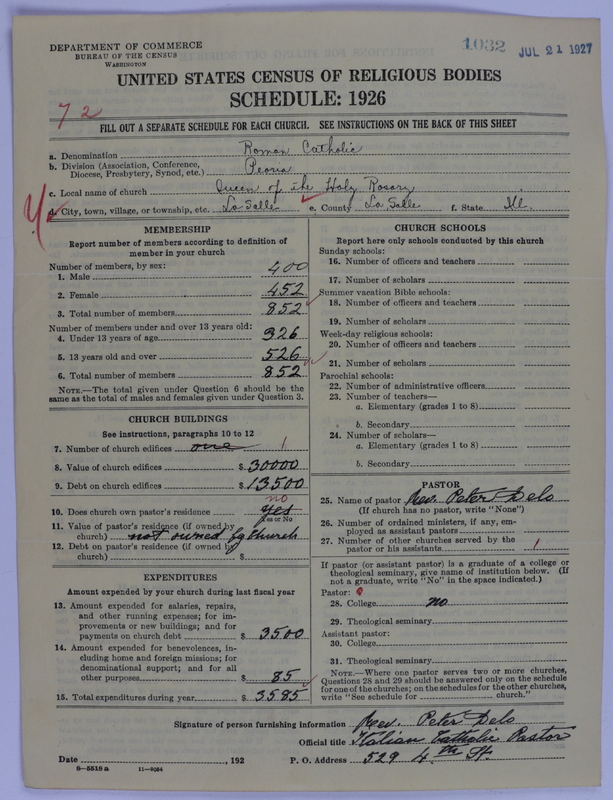 DEPARTMENT OF COMMERCE
BUREAU OF THE CENSUS
WASHINGTON
1032 JUL 21 1927
UNITED STATES CENSUS OF RELIGIOUS BODIES
SCHEDULE: 1926
72
FILL OUT A SEPARATE SCHEDULE FOR EACH CHURCH. SEE INSTRUCTIONS ON THE BACK OF THIS SHEET
a. Denomination Roman Catholic
b. Division (Association, Conference, Diocese, Presbytery, Synod, etc.) Peoria
c. Local name of church Queen of the Holy Rosary
d. City, town, village, or township, etc. La Salle e. County La Salle f. State Ill.
MEMBERSHIP
Report number of members according to definition of
member in your church
Number of members, by sex:
1. Male 400
2. Female 452
3. Total number of members 852
Number of members under and over 13 years old:
4. Under 13 years of age 326
5. 13 years old and over 526
6. Total number of members 852
NOTE.—The total given under Question 6 should be the
same as the total of males and females given under Question 3.
CHURCH BUILDINGS
See instructions, paragraphs 10 to 12
7. Number of church edifices one 1
8. Value of church edifices $ 30000
9. Debt on church edifices $ 13500
no
10. Does church own pastor's residence yes
Yes or No
11. Value of pastor's residence (if owned by
church) not owned by church
12. Debt on pastor's residence (if owned by
church) $
EXPENDITURES
Amount expended by your church during last fiscal year
13. Amount expended for salaries, repairs,
and other running expenses; for im-
provements or new buildings; and for
payments on church debt $ 3500
14. Amount expended for benevolences, in-
cluding home and foreign missions; for
denominational support; and for all
other purposes $ 85
15. Total expenditures during year $ 3585
CHURCH SCHOOLS
Report here only schools conducted by this church
Sunday schools:
16. Number of officers and teachers
17. Number of scholars
Summer vacation Bible schools:
18. Number of officers and teachers
19. Number of scholars
Week-day religious schools:
20. Number of officers and teachers
21. Number of scholars
Parochial schools:
22. Number of administrative officers
23. Number of teachers—
a. Elementary (grades 1 to 8)
b. Secondary
24. Number of scholars—
a. Elementary (grades 1 to 8)
b. Secondary
PASTOR
25. Name of pastor Rev. Peter Delo
(If church has no pastor, write "None")
26. Number of ordained ministers, if any, em-
ployed as assistant pastors
27. Number of other churches served by the
pastor or his assistants 1
If pastor (or assistant pastor) is a graduate of a college or
theological seminary, give name of institution below. (If
not a graduate, write "No" in the space indicated.)
Pastor:
28. College no
29. Theological seminary
Assistant pastor:
30. College
31. Theological seminary
NOTE.—Where one pastor serves two or more churches,
Questions 28 and 29 should be answered only on the schedule
for one of the churches; on the schedules for the other churches,
write "See schedule for church."
Signature of person furnishing information Rev. Peter Delo
Official title Italian Catholic Pastor
Date , 192 P. O. Address 529 4th St.
8—5518a 11—9054